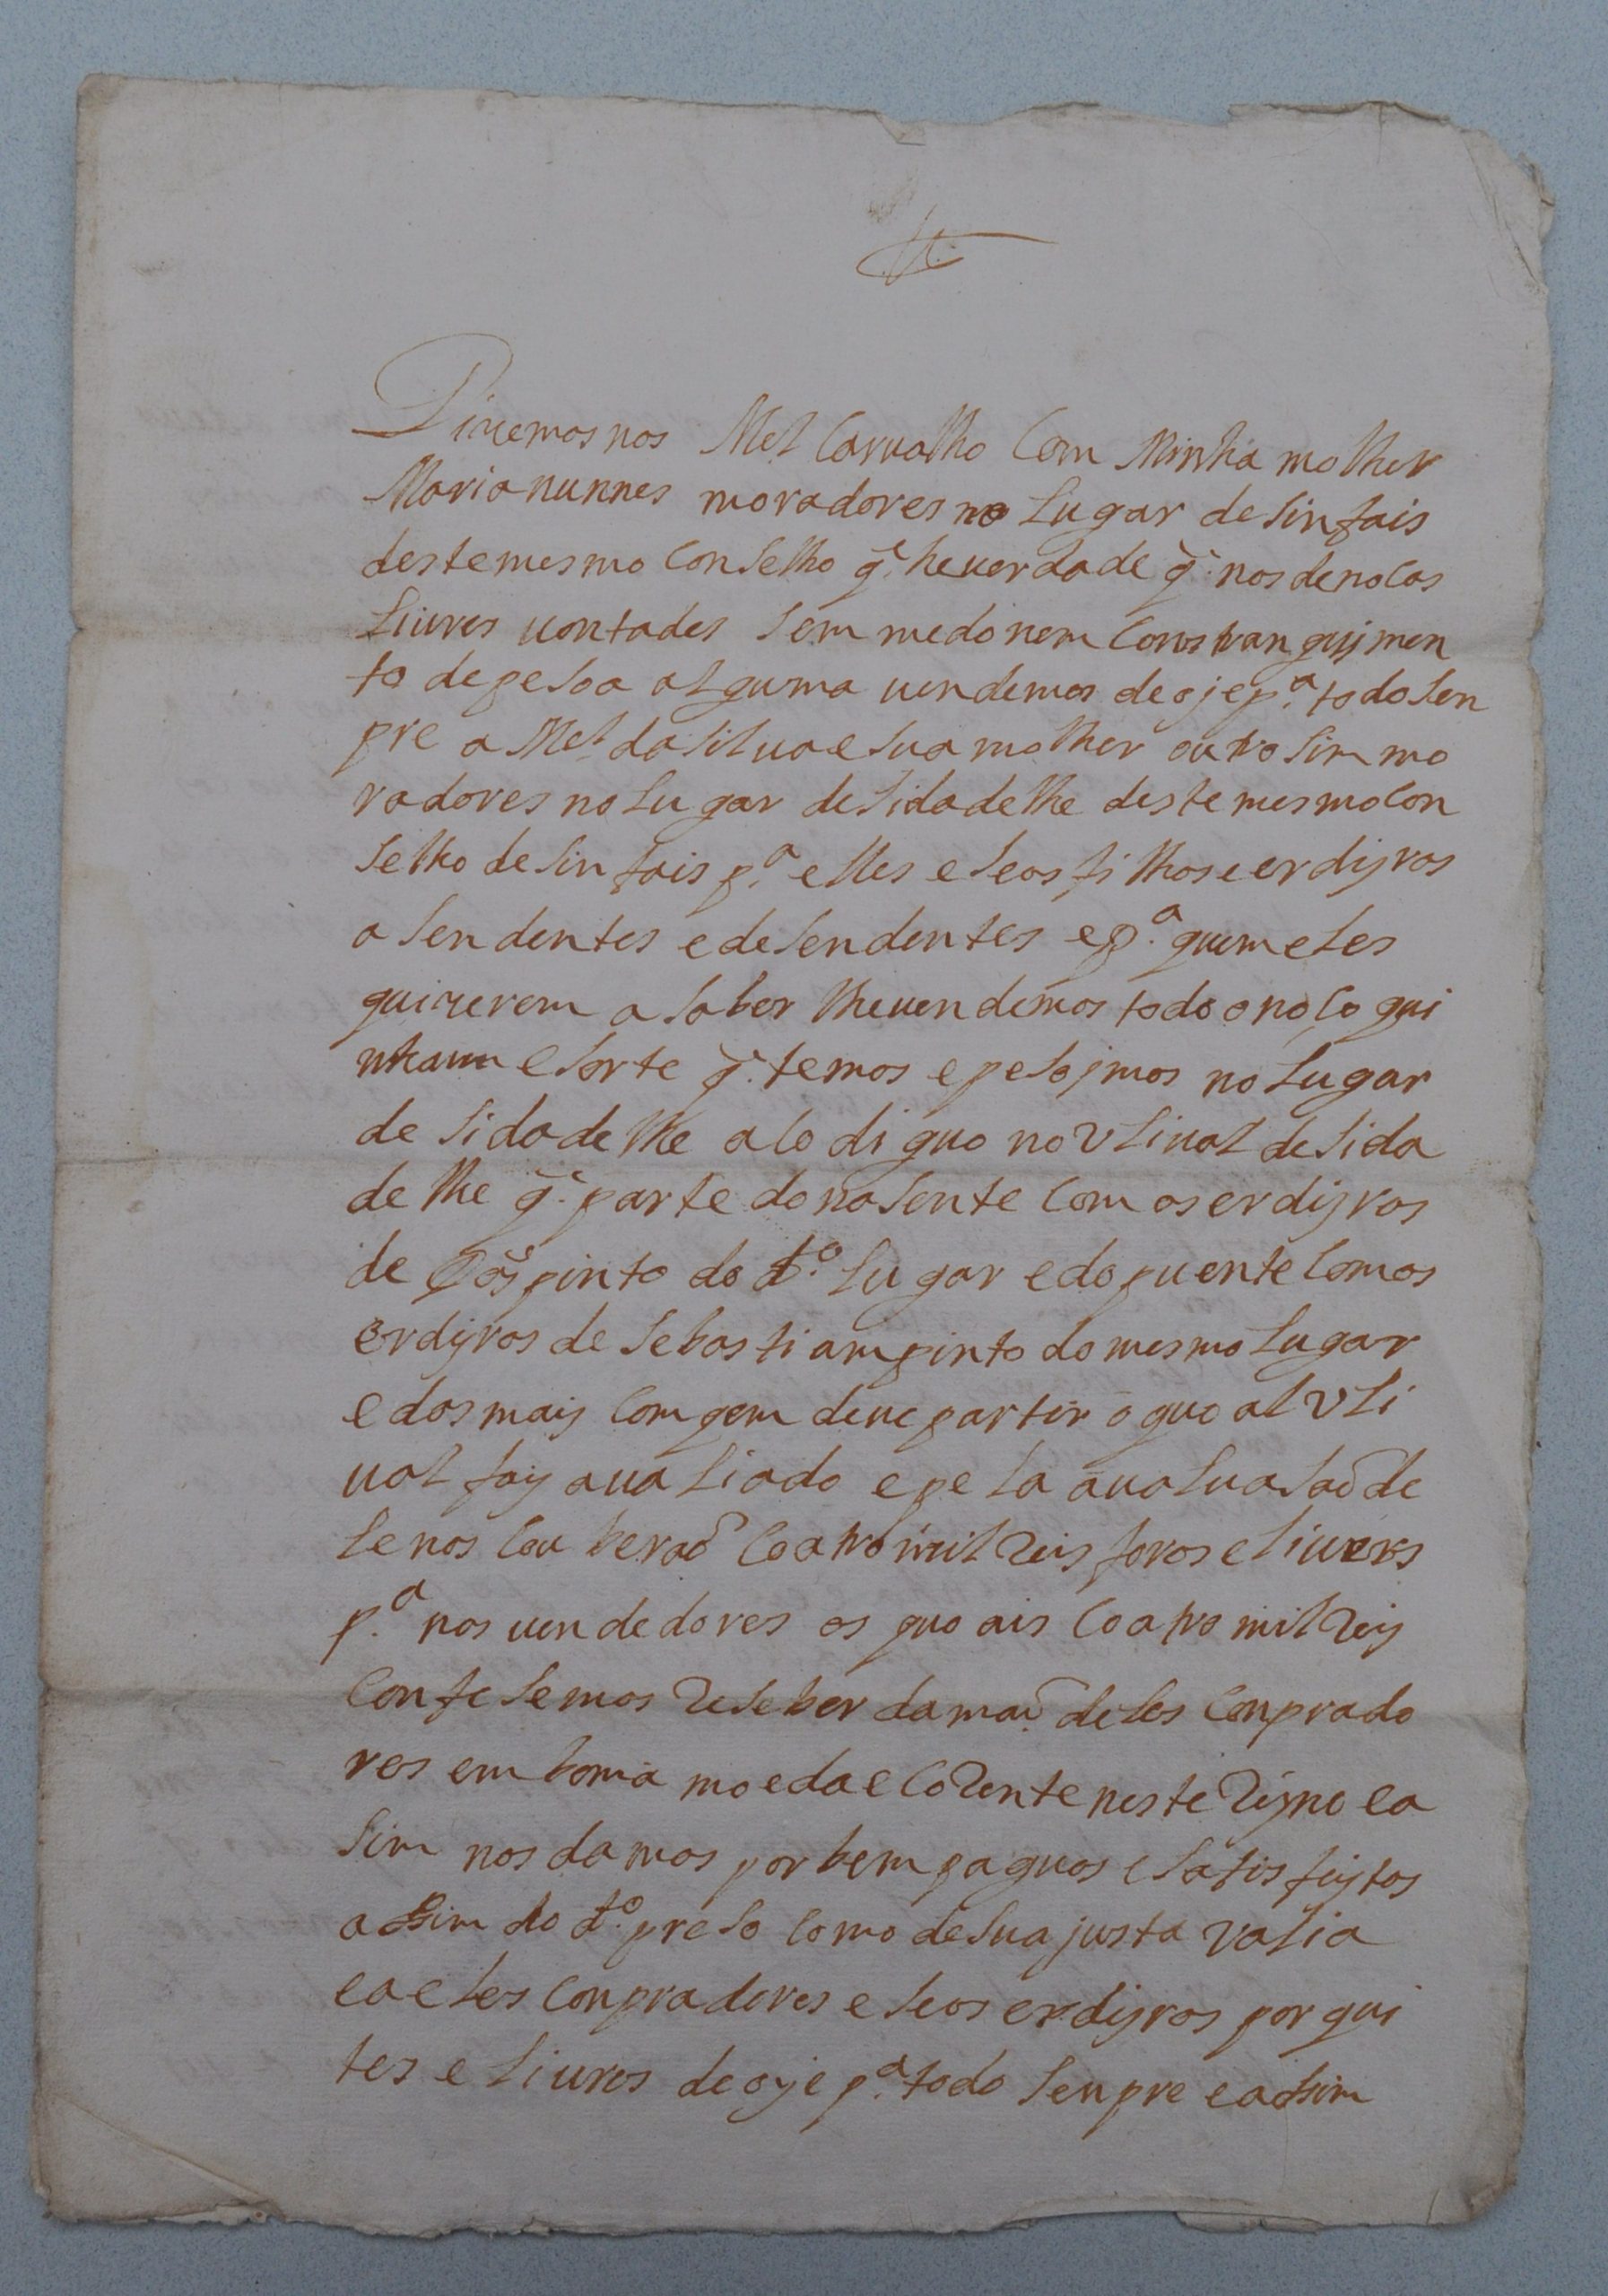 Dizemos nos Mel Carvalho Com Minha molher
Maria nunnes moradores no Lugar de sinfais
deste mesmo Conselho q̃ he verdade q̃ nos de nosas
Liures uontades sem medo nem Constrangijmen
to de pesoa alguma uendemos de oje p.ª todo sen
pre a Mel da silua e sua molher outro sim mo
radores no Lugar de sidadelhe deste mesmo Con
selho de sinfais p.ª elles e seos filhos e erdijros
asendentes e desendentes e p.ª quem eles
quizerem a saber lhe uendemos todo o noso qui
nham e sorte q̃ temos e pesojmos no Lugar
de sidadelhe aso diguo no oLiual de sida
delhe q̃ parte do nasente Com os erdijros
de pinto do d.º Lugar e do puente Com os
erdijros de sebastiam pinto do mesmo Lugar
e dos mais Com qem deue partir o quoal oLi
ual foy aualiado e pela aualuasaõ de
le nos Couberaõ Coatro mil Reis foros e Liures
p.ª nos uendedores os quoais Coatro mil Reis
Confesemos Reseber da maõ deles Conprado
res em boma moeda e CoRente neste Reyno e a
sim nos damos por bem paguos e satisfeijtos
assim do d.º preso Como de sua justa valia
e a eles Conpradores e seos erdijros por qui
tes e Liures de oje p.ª todo senpre e assim